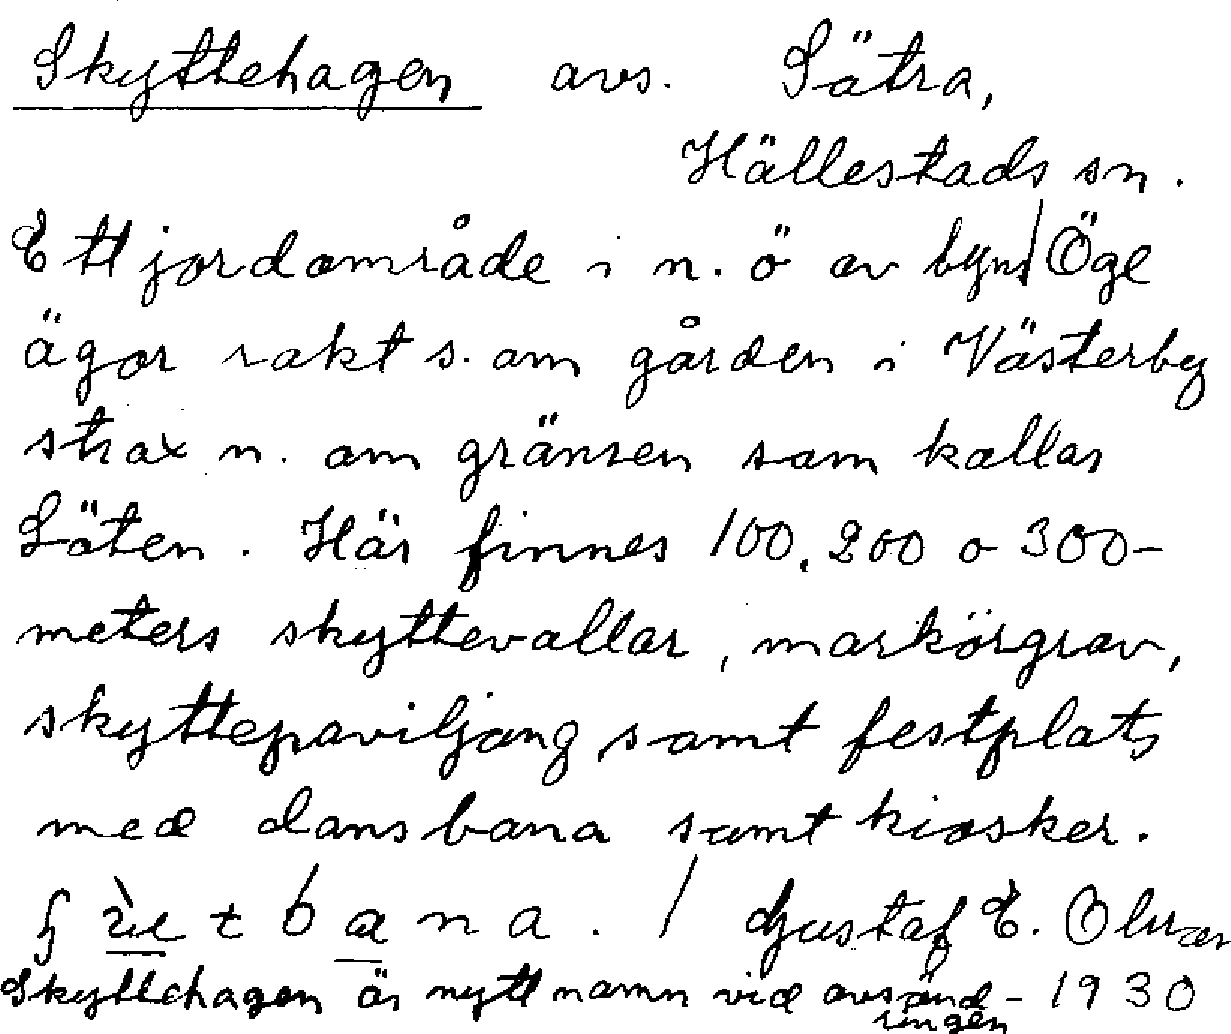 Skyttehagen avs. Sätra,
Hällestads sn.
Ett jordområde i n. ö av byns Öge
ägor rakt s. om gården i Västerby
strax n. om gränsen som kallas
Säten. Här finnes 100, 200 o 300-
meters skyttevallar, markörgrav,
skyttepaviljong samt festplats
med dansbana samt kiosker.
bana. / Gustaf E. Olsson
Skyttehagen är nytt namn vid avsänd- 1930
ringen